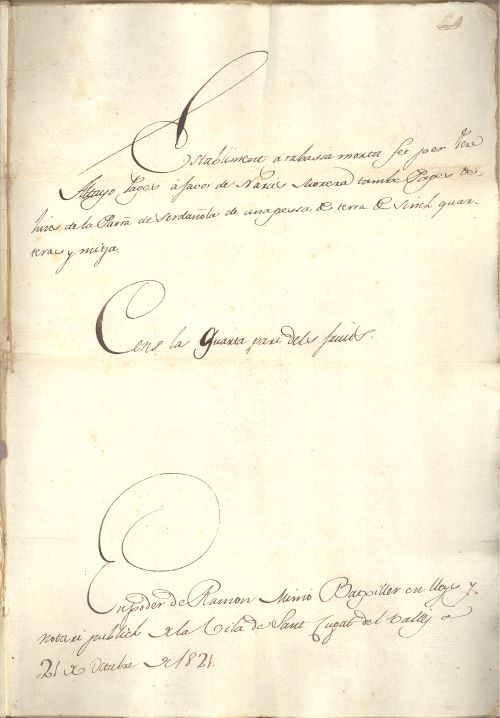 Establiment à rabassa morta fet per Pere
Altayo Pages à favor de Narcis Morera també Pages de-
hins de la Parrâ de Serdañola de una pessa de terra de sinch quar-
teras y mitja.
Cens, la Quarta part dels fruits.
En poder de Ramon Mimó Batxiller en lleys y
notari publich de la Vila de Sant Cugat del Vallès a
21 de Octubre de 1821.